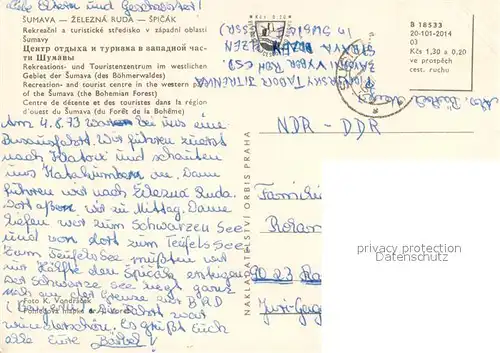 Liebe Eltern und Geschwister!
ŠUMAVA — ŽELEZNÁ RUDA — ŠPIČÁK
Rekreační a turistické středisko v západní oblasti
Šumavy
Центр отдыха и туризма в западной час-
ти Шумавы
Rekreations- und Touristenzentrum im westlichen
Gebiet der Šumava (des Böhmerwaldes)
Recreation- and tourist centre in the western part
of the Šumava (the Bohemian Forest)
Centre de détente et des touristes dans la région
d'ouest du Šumava (du Forêt de la Bohême)
Am 4.8.73 waren wir eine
Busausfahrt. Wir führen zuerst
nach Klatovi und schauten
uns Katakomben an. Dann
führen wir nach Eelezna Ruda.
Dort aßen wir zu Mittag. Dann
liefen wir zum Schwarzen See
und von dort zum Teufels See
Zum Teufelssee mußten wir
zur Hälfte den Špičák ersteigen.
Der Schwarze See liegt ganz
nah an der Grenze zur BRD
Foto K. Vondráček
(Bayern). Die Fahrt war
wunderschön. Es grüßt Euch
alle Eure Bärbel!
NAKLADATELSTVÍ ORBIS PRAHA
PIONÝRSKÝ TABOR JITŘENKA
ZÁVODNÍ VÝBOR ROH ČSD
PLZEN
B 18533
20-101-2014
03
Kčs 1,30 & 0,20
ve protpěch
cest. ruchu
NDR - DDR
Familie
privacy protection
Datenschutz